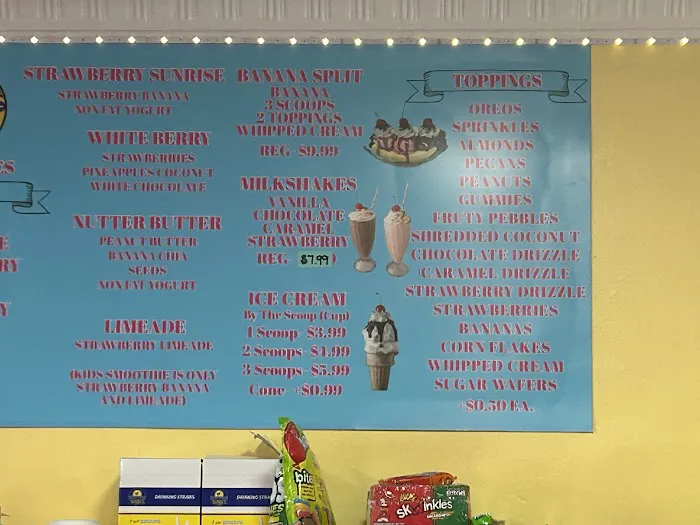 STRAWBERRY SUNRISE
STRAWBERRY BANANA
NON FAT YOGURT
WHITE BERRY
STRAWBERRIES
PINEAPPLES COCONUT
WHITE CHOCOLATE
NUTTER BUTTER
PEANUT BUTTER
BANANA CHIA
SEEDS
NON FAT YOGURT
LIMEADE
STRAWBERRY LIMEADE
(KIDS SMOOTHIE IS ONLY
STRAWBERRY BANANA
AND LIMEADE)
BANANA SPLIT
BANANA
3 SCOOPS
2 TOPPINGS
WHIPPED CREAM
REG $9.99
MILKSHAKES
VANILLA
CHOCOLATE
CARAMEL
STRAWBERRY
REG $7.99
ICE CREAM
By The Scoop (Cup)
1 Scoop- $3.99
2 Scoops- $4.99
3 Scoops- $5.99
Cone- +$0.99
TOPPINGS
OREOS
SPRINKLES
ALMONDS
PECANS
PEANUTS
GUMMIES
FRUTY PEBBLES
SHREDDED COCONUT
CHOCOLATE DRIZZLE
CARAMEL DRIZZLE
STRAWBERRY DRIZZLE
STRAWBERRIES
BANANAS
CORN FLAKES
WHIPPED CREAM
SUGAR WAFERS
+$0.50 EA.
DRINKING STRAWS
DRINKING STRAWS
bite
SK
inkles